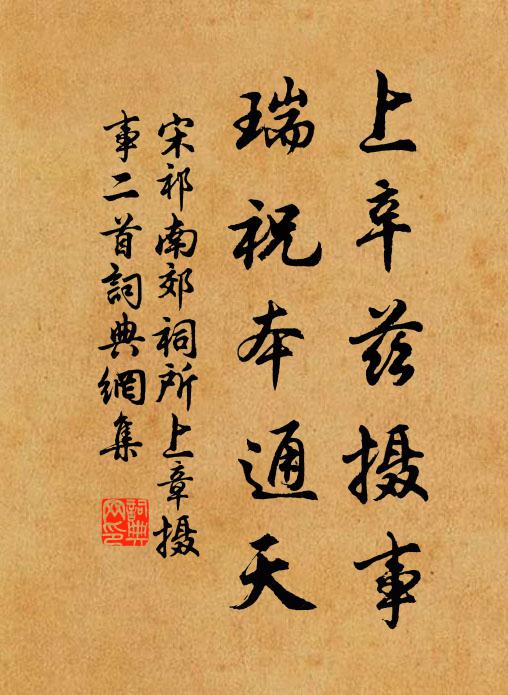 上辛兹摄事
瑞祝本通天
宋祁南郊祠所上章摄
事二首詞典網集
詞典
网印